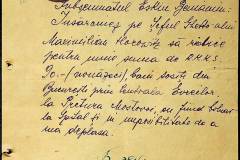 Subsemnatul
Însărcinez pe Șeful Ghetto-ului
Maximilian să ridice
pentru mine suma de RMKS.
90.- (nouăzeci), bani sosiți din
București prin Centrala Evreilor
la Pretura Mostovoi, eu fiind bolnav
la Spital și în imposibilitate de a
mă deplasa.